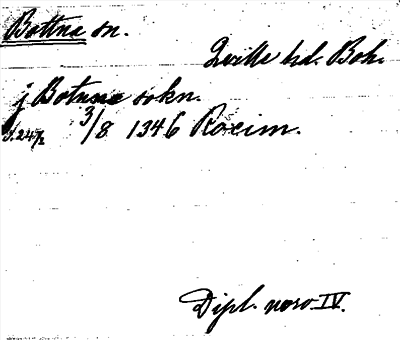 Bottna sn.
Qville hd. Boh.
j Botnne sokn.
s. 247, 3/8 1346 Rocim.
Dipl. norv. IV.